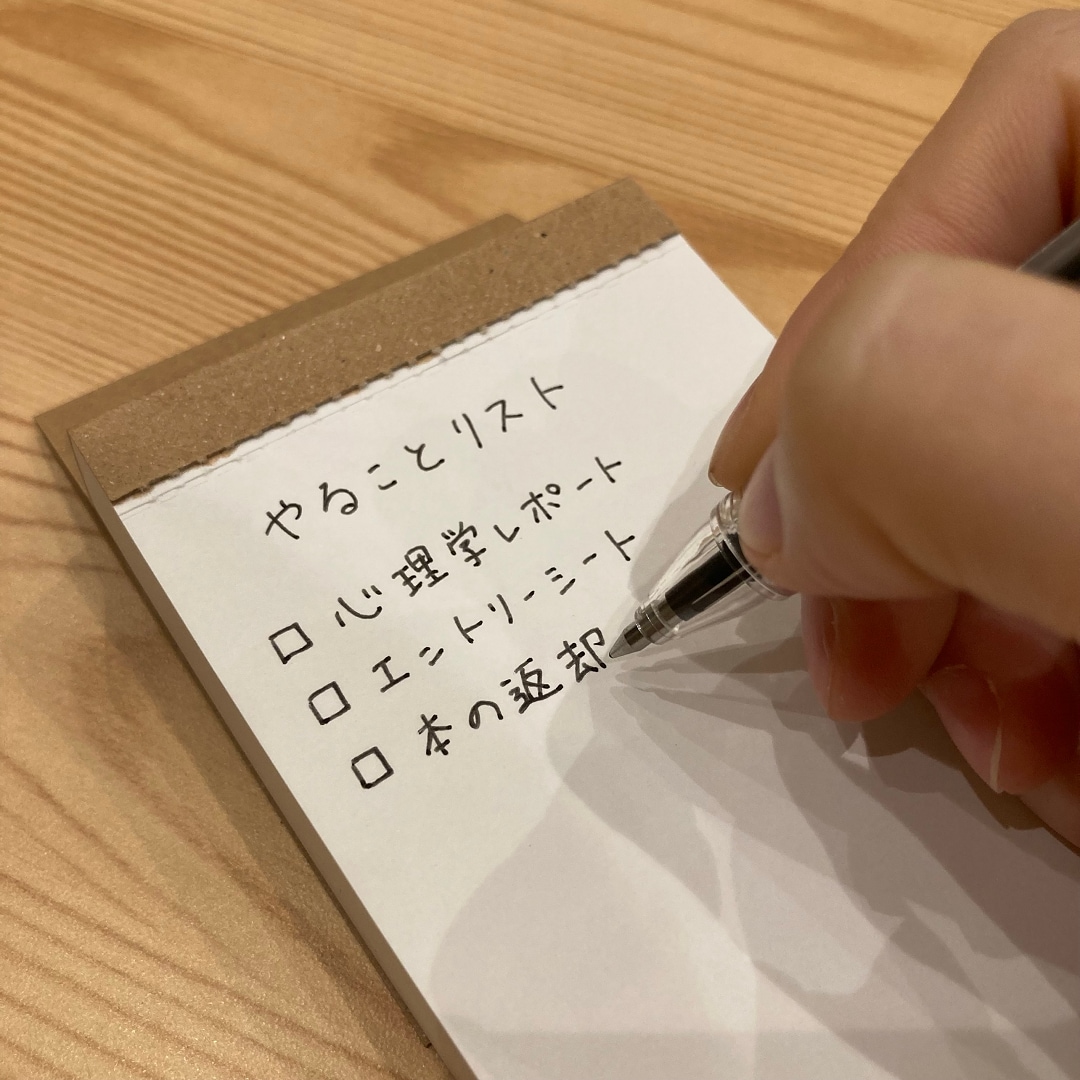 やることリスト
□ 心理学レポート
□ エントリーシート
□ 本の返却